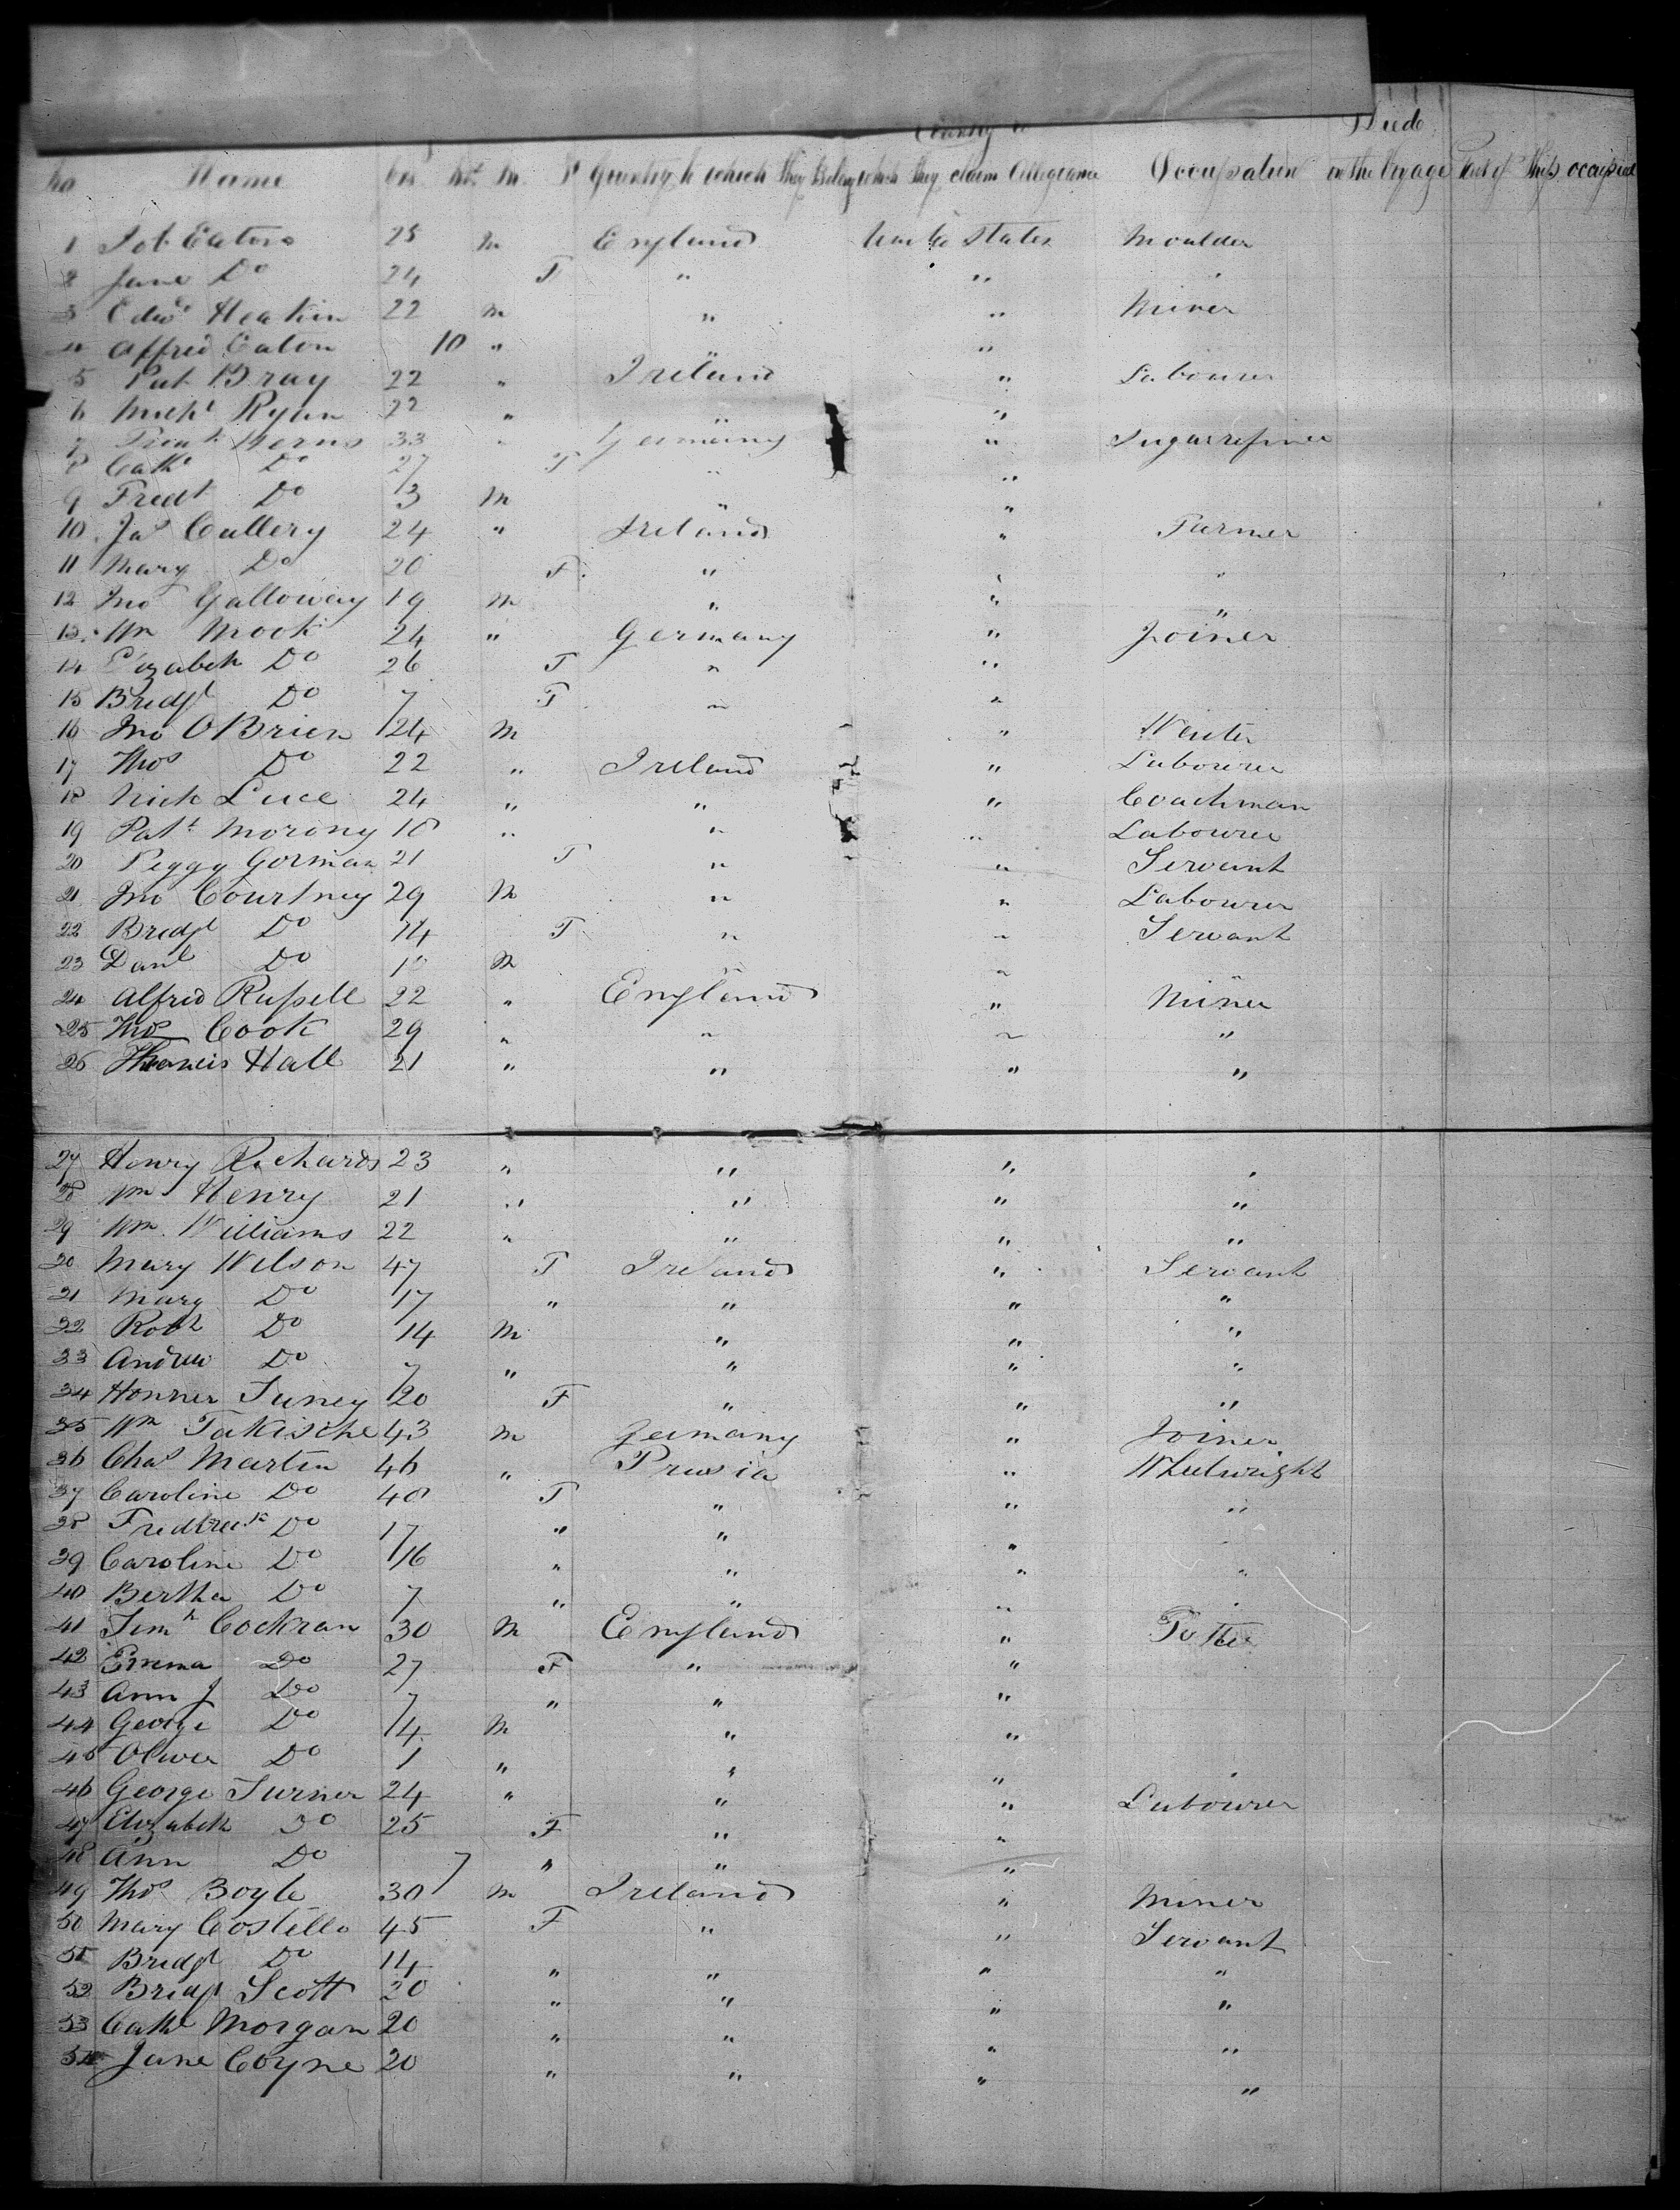 Country to Died
No Name Yrs Mts M F Country to which they Belong which they claim Allegiance Occupation on the Voyage Part of Ship occupied
1 Job Eaton 25 M England United States Moulder
2 Jane Do 24 F " " "
3 Edwd Heakin 22 M " " Miner
4 Alfred Eaton 10 " " "
5 Pat Bray 22 " Ireland " Labourer
6 Michl Ryan 22 " " "
7 Kerns 33 " Germany " Sugarrefiner
8 Cathe Do 27 F " "
9 Fredk Do 3 M " "
10 Jas Cullery 24 " Ireland " Farmer
11 Mary Do 20 F " " "
12 Jno Galloway 19 M " " "
13 Wm Mook 24 " Germany " Joiner
14 Elizabeth Do 26 F " "
15 Bredgt Do 7 F " "
16 Jno OBrien 24 M " Writer
17 Thos Do 22 " Ireland " Labourer
18 Nick Luce 24 " " " Coachman
19 Patt Morony 18 " " " Labourer
20 Peggy Gorman 21 F " " Servant
21 Jno Courtney 29 M " " Labourer
22 Bredgt Do 14 F " " Servant
23 Danl Do M "
24 Alfred Russell 22 " England " Miner
25 Thos Cook 29 " " " "
26 Francis Hall 21 " " " "
27 Henry Richards 23 " " " "
28 Wm Henry 21 " " " "
29 Wm Williams 22 " " " "
30 Mary Wilson 47 F Ireland " Servant
31 Mary Do 17 " " " "
32 Robt Do 14 M " " "
33 Andrew Do 7 " " " "
34 Honner Tuney 20 F " " "
35 Wm Takische 43 M Germany " Joiner
36 Chas Martin 46 " Prusia " Wheelwright
37 Caroline Do 40 F " " "
38 Fredireck Do 17 " " "
39 Caroline Do 16 " " " "
40 Bertha Do 7 " " " "
41 Cockran 30 M England " Potter
42 Emma Do 27 F " "
43 Ann J Do 7 " " "
44 George Do 4 M " "
45 Oliver Do 1 " " " "
46 George Turner 24 " " " Labourer
47 Elizabeth Do 25 F " "
48 Ann Do 7 " " "
49 Thos Boyle 30 M Ireland " Miner
50 Mary Costello 45 F " " Servant
51 Bredgt Do 14 " " " "
52 Bredgt Scott 20 " " " "
53 Cathe Morgan 20 " " " "
54 Jane Coyne 20 " " " "